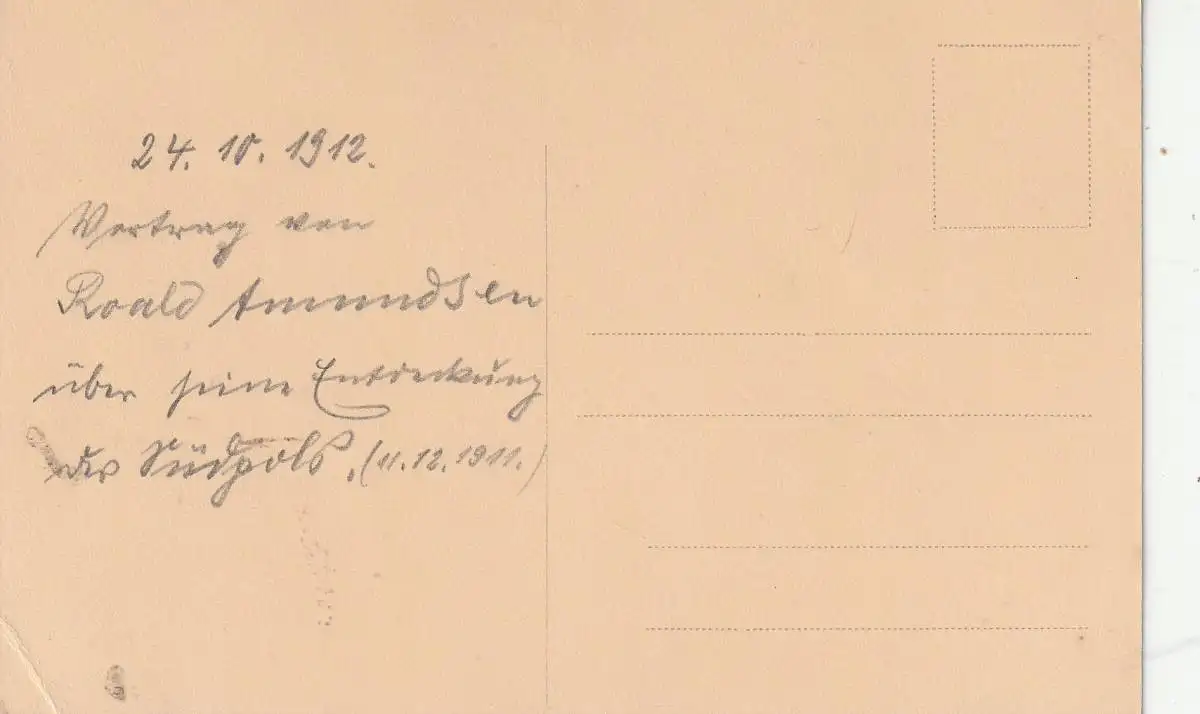 24. 10. 1912.
Vortrag von
Roald Amundsen
über seine Entdeckung
des Südpols. (11.12.1911.)